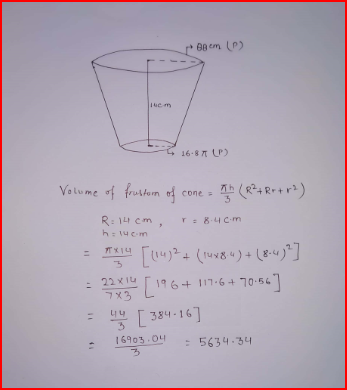 88 cm (P)
14cm
16.8 π (P)
Volume of frustom of cone = πh/3 (R²+Rr+r²)
R=14 cm, r = 8.4 cm
h=14cm
= π×14/3 [(14)²+(14×8.4)+(8.4)²]
= 22×14/7×3 [196+117.6+70.56]
= 44/3 [384.16]
= 16903.04/3 = 5634.34